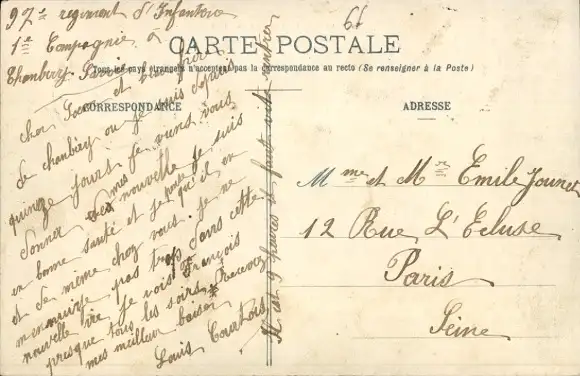 97e regiment d'Infanterie
1re Compagnie à
Chambéry Savoie
66
CARTE POSTALE
Tous les pays étrangers n'acceptent pas la correspondance au recto (Se renseigner à la Poste)
CORRESPONDANCE
ADRESSE
cher et
de chambéry ou je suis depuis
quinze jours je viens vous
donner des mes nouvelle je suis
en bonne santé et je pense qu'il en
et de même chez vous. je ne
m'ennuie pas trop dans cette
nouvelle vie. je vois François
presque tous les soirs Recevez
mes meilleur baiser
Louis Courtois
il est 9 heures il faut vite rentrer
Mme et Mr Emile Jounet
12 Rue L'Ecluse
Paris
Seine